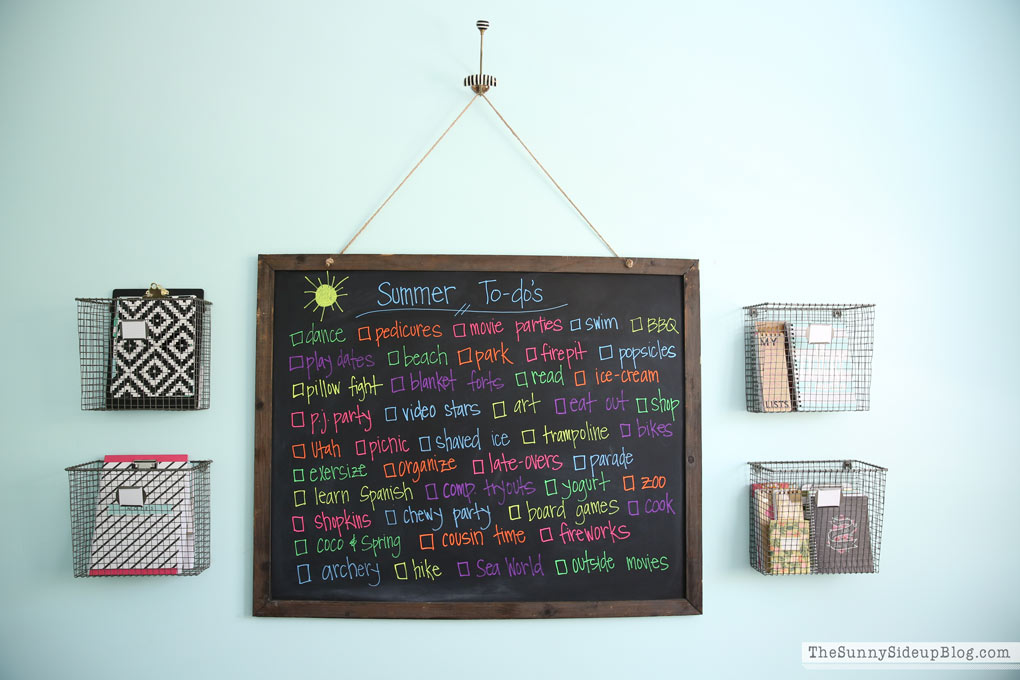 Summer To-do's
dance pedicures movie parties swim BBQ
play dates beach park firepit popsicles
pillow fight blanket forts read ice-cream
p.j. party video stars art eat out shop
Utah picnic shaved ice trampoline bikes
exersize organize late-overs parade
learn Spanish comp. tryouts yogurt zoo
shopkins chewy party board games cook
coco & Spring cousin time fireworks
archery hike Sea World outside movies
MY
LISTS
TheSunnySideupBlog.com